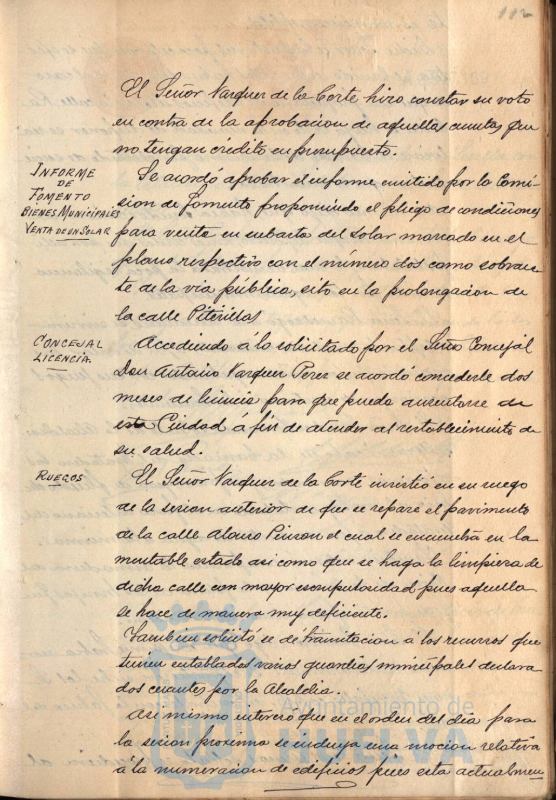 112
El Señor Vazquez de la Corte hizo constar su voto
en contra de la aprobacion de aquellas cuentas que
no tengan crédito en presupuesto.
INFORME
DE
FOMENTO
BIENES MUNICIPALES
VENTA DE UN SOLAR
Se acordó aprobar el informe emitido por la Comi
sion de Fomento proponiendo el pliego de condiciones
para venta en subasta del solar marcado en el
plano respectivo con el número dos como sobran
te de la via pública, sito en la prolongacion de
la calle Piterillas
CONCEJAL
LICENCIA.
Accediendo á lo solicitado por el Señor Concejal
Don Antonio Vazquez Perez se acordó concederle dos
meses de licencia para que pueda ausentarse de
esta Ciudad á fin de atender al restablecimiento de
su salud.
RUEGOS
El Señor Vazquez de la Corte insistió en su ruego
de la sesion anterior de que se repare el pavimento
de la calle Alonso Pinzon el cual se encuentra en la
mentable estado asi como que se haga la limpieza de
dicha calle con mayor escrupulosidad pues aquella
se hace de manera muy deficiente.
Tambien solicitó se dé tramitacion á los recursos que
tienen entablados varios guardias municipales declara
dos cesantes por la Alcaldia.
Asi mismo interesó que en el orden del dia para
la sesion proxima se incluya una mocion relativa
á la numeracion de edificios pues esta actualmen
Ayuntamiento de
HUELVA